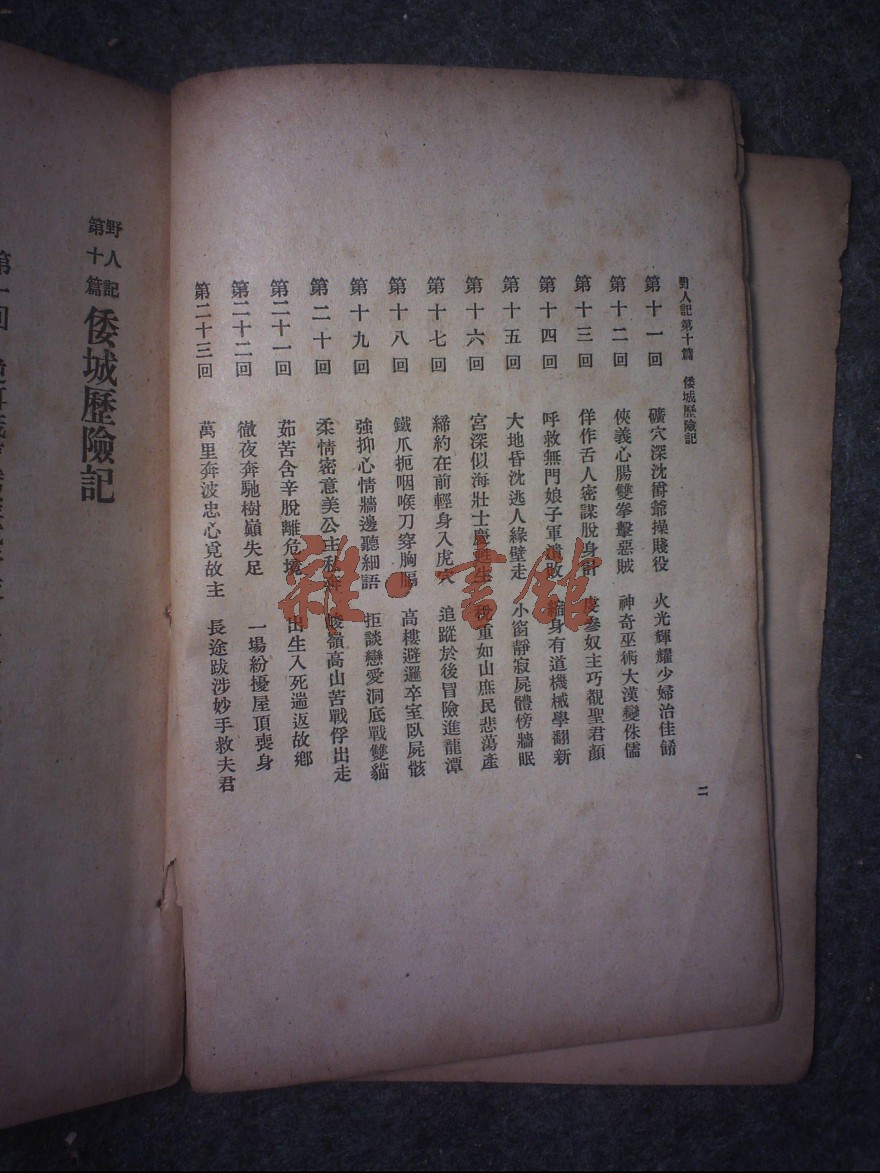 野人記第十篇 倭城歷險記
第十一回 礦穴深沈爵爺操賤役 火光輝耀少婦治佳餚
第十二回 俠義心腸雙拳擊惡賊 神奇巫術大漢變侏儒
第十三回 佯作舌人密謀脫身計 虔參奴主巧覩聖君顏
第十四回 呼救無門娘子軍潰敗 縮身有道機械學翻新
第十五回 大地昏沈逃人緣壁走 小窗靜寂屍體傍牆眠
第十六回 宮深似海壯士慶甦生 稅重如山庶民悲蕩產
第十七回 締約在前輕身入虎穴 追蹤於後冒險進龍潭
第十八回 鐵爪扼咽喉刀穿胸膈 高樓避邏卒室臥屍骸
第十九回 強抑心情牆邊聽細語 拒談戀愛洞底戰雙貓
第二十回 柔情密意美公主私奔 峻嶺高山苦戰俘出走
第二十一回 茹苦含辛脫離危境 出生入死遄返故鄉
第二十二回 徹夜奔馳樹巔失足 一場紛擾屋頂喪身
第二十三回 萬里奔波忠心覓故主 長途跋涉妙手救夫君
二
野人記
第十篇
倭城歷險記
第一回
雜·書館